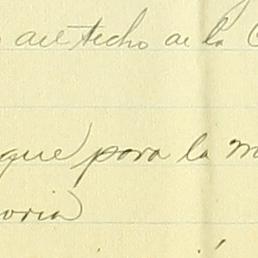 del techo de la
que para la
oria